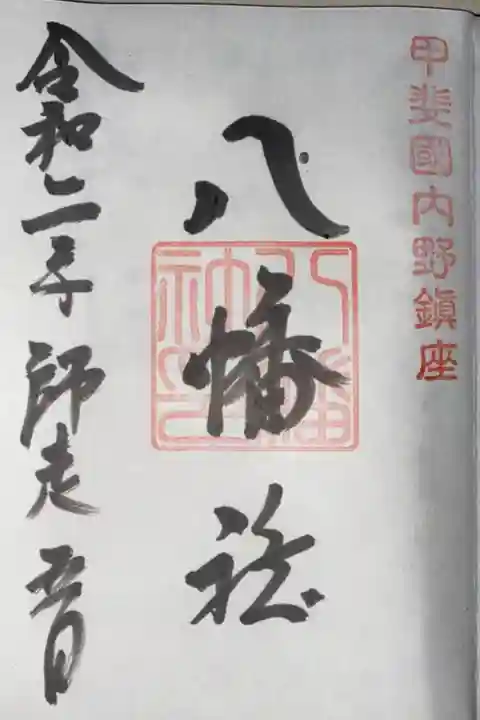 甲斐國内野鎮座
八幡社
令和二年師走吉日